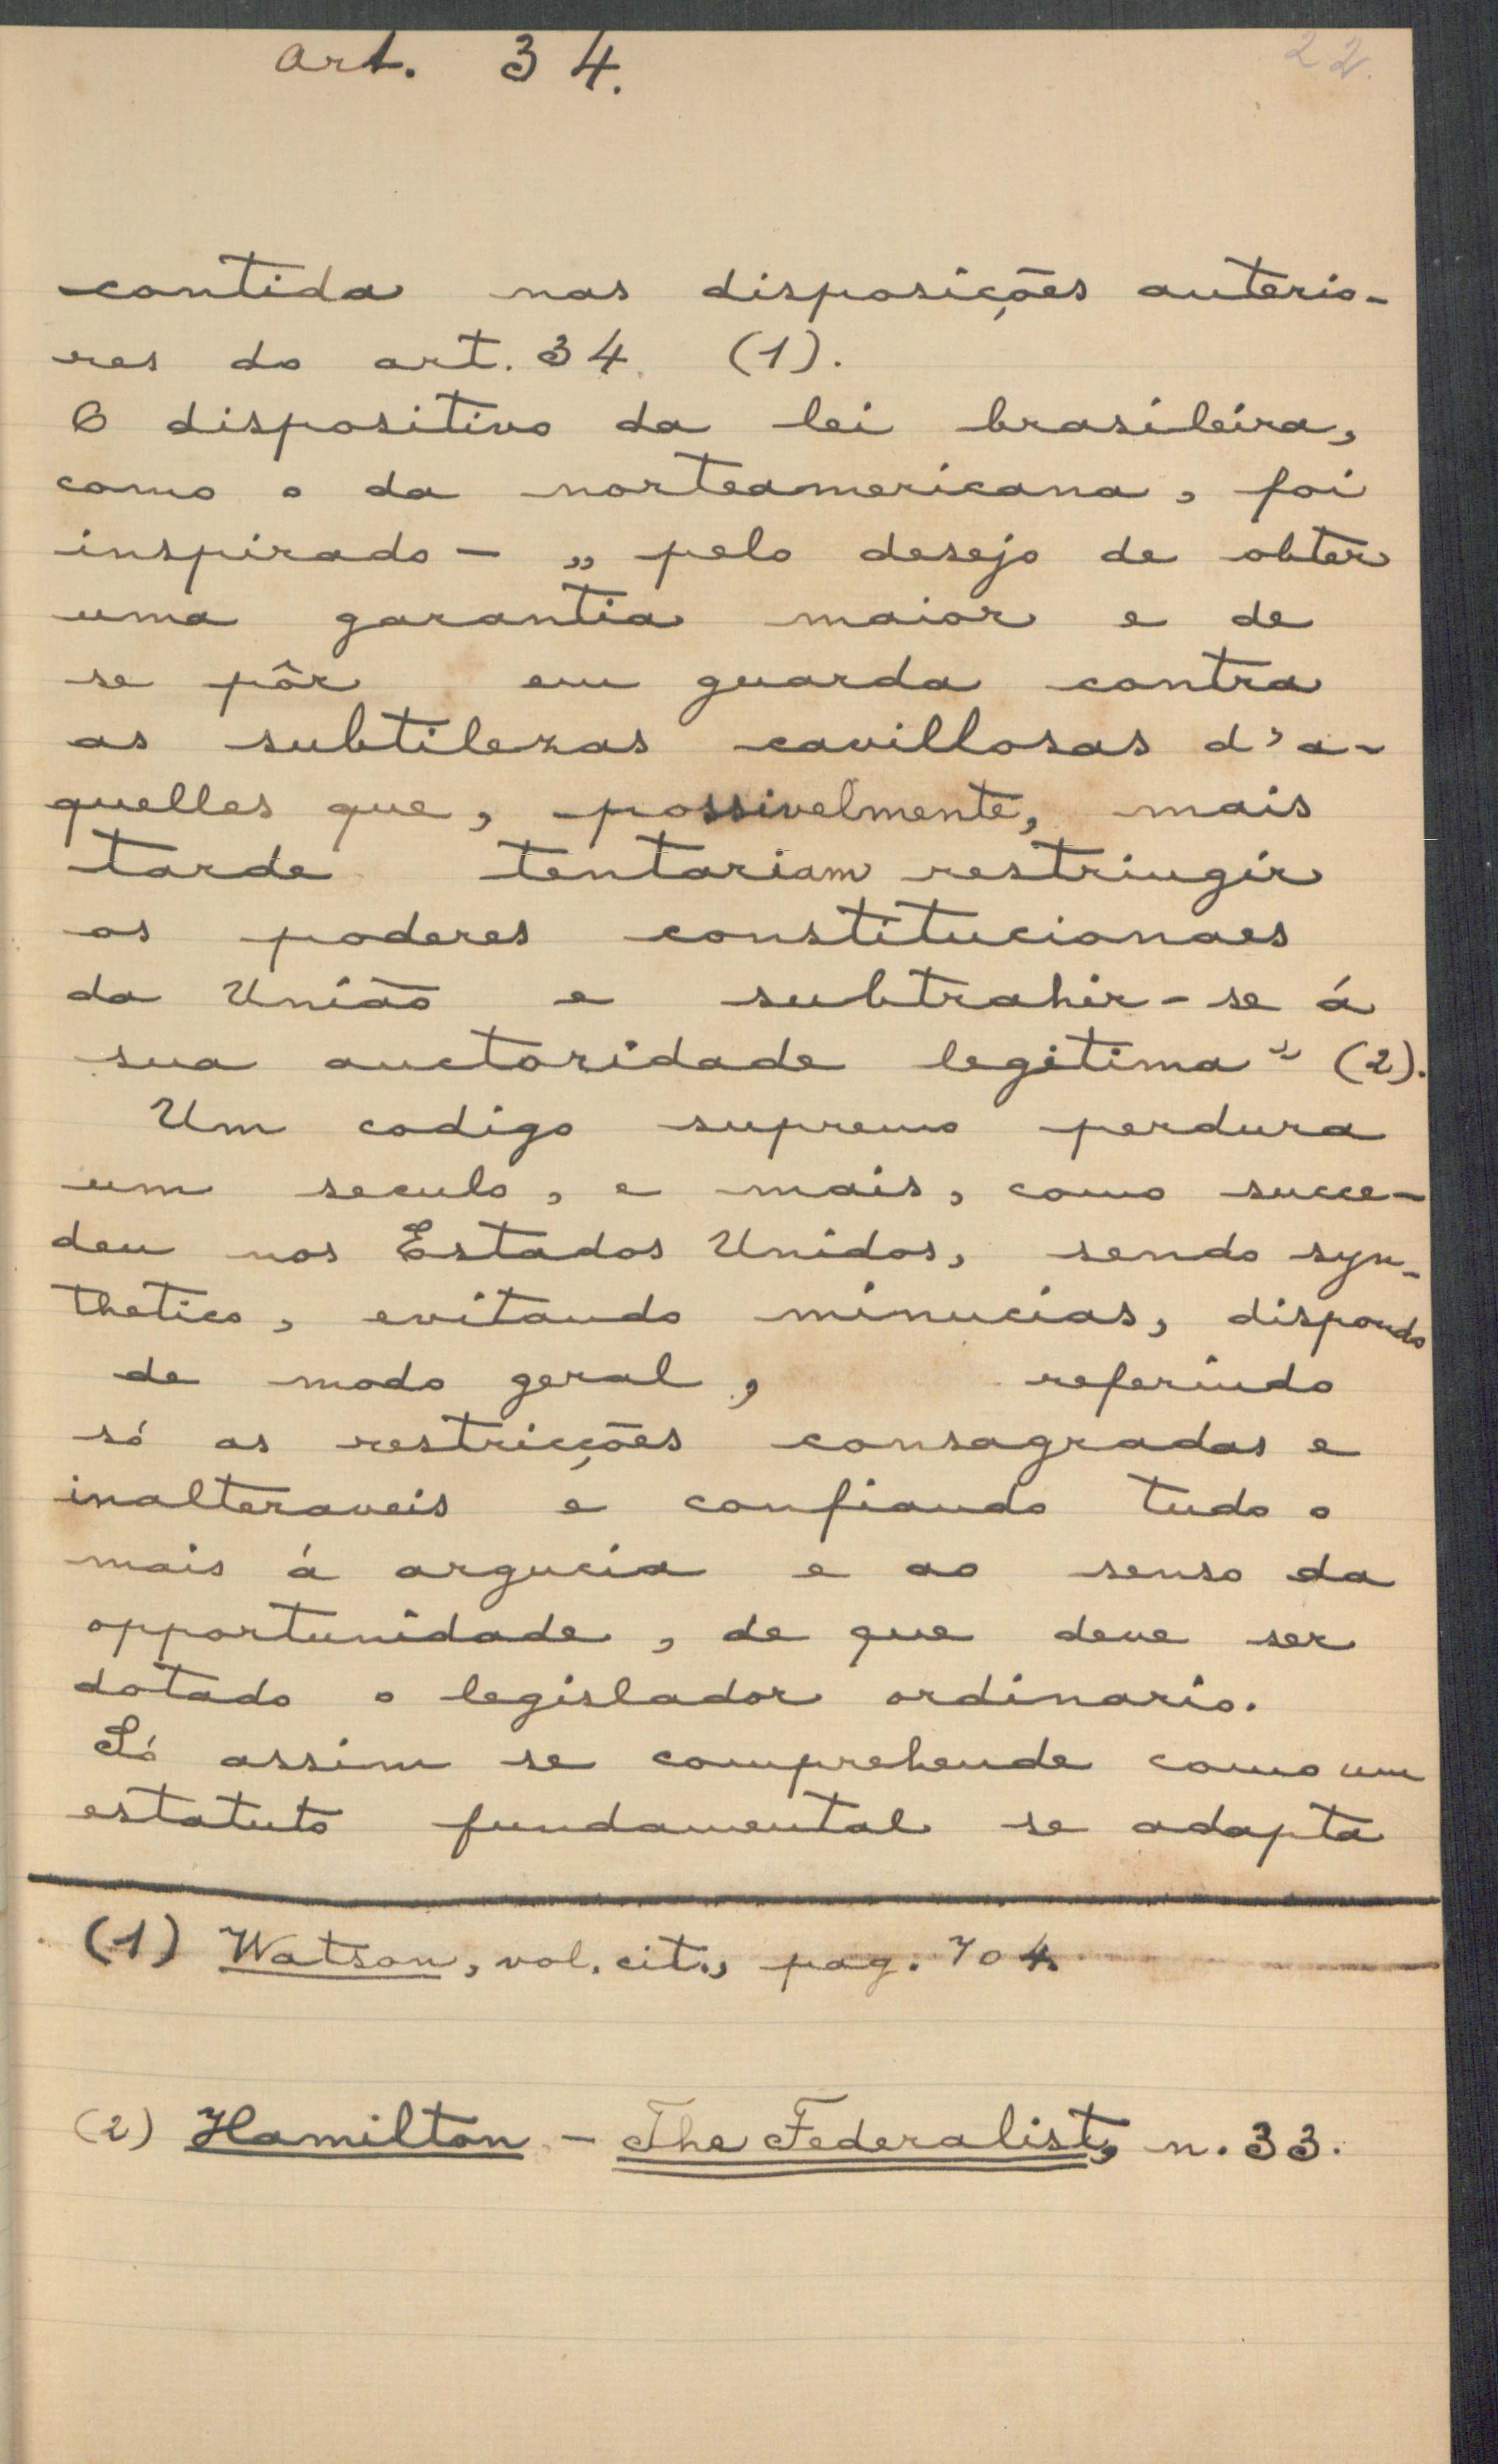 Art. 34.
22.
contida nas disposições anterio-
res do art. 34. (1).
O dispositivo da lei brasileira,
como o da norteamericana, foi
inspirado - „ pelo desejo de obter
uma garantia maior e de
se pôr em guarda contra
as subtilezas cavillosas d'a-
quelles que, possivelmente, mais
tarde tentariam restringir
os poderes constitucionaes
da União e subtrahir-se á
sua auctoridade legitima" (2).
Um codigo supremo perdura
um seculo, e mais, como succe-
deu nos Estados Unidos, sendo syn-
thetico, evitando minucias, dispondo
de modo geral, referindo
só as restricções consagradas e
inalteraveis e confiando tudo o
mais á argucia e ao senso da
opportunidade, de que deve ser
dotado o legislador ordinario.
Só assim se comprehende como um
estatuto fundamental se adapta
(1) Watson, vol. cit., pag. 704
(2) Hamilton - The Federalist, n. 33.